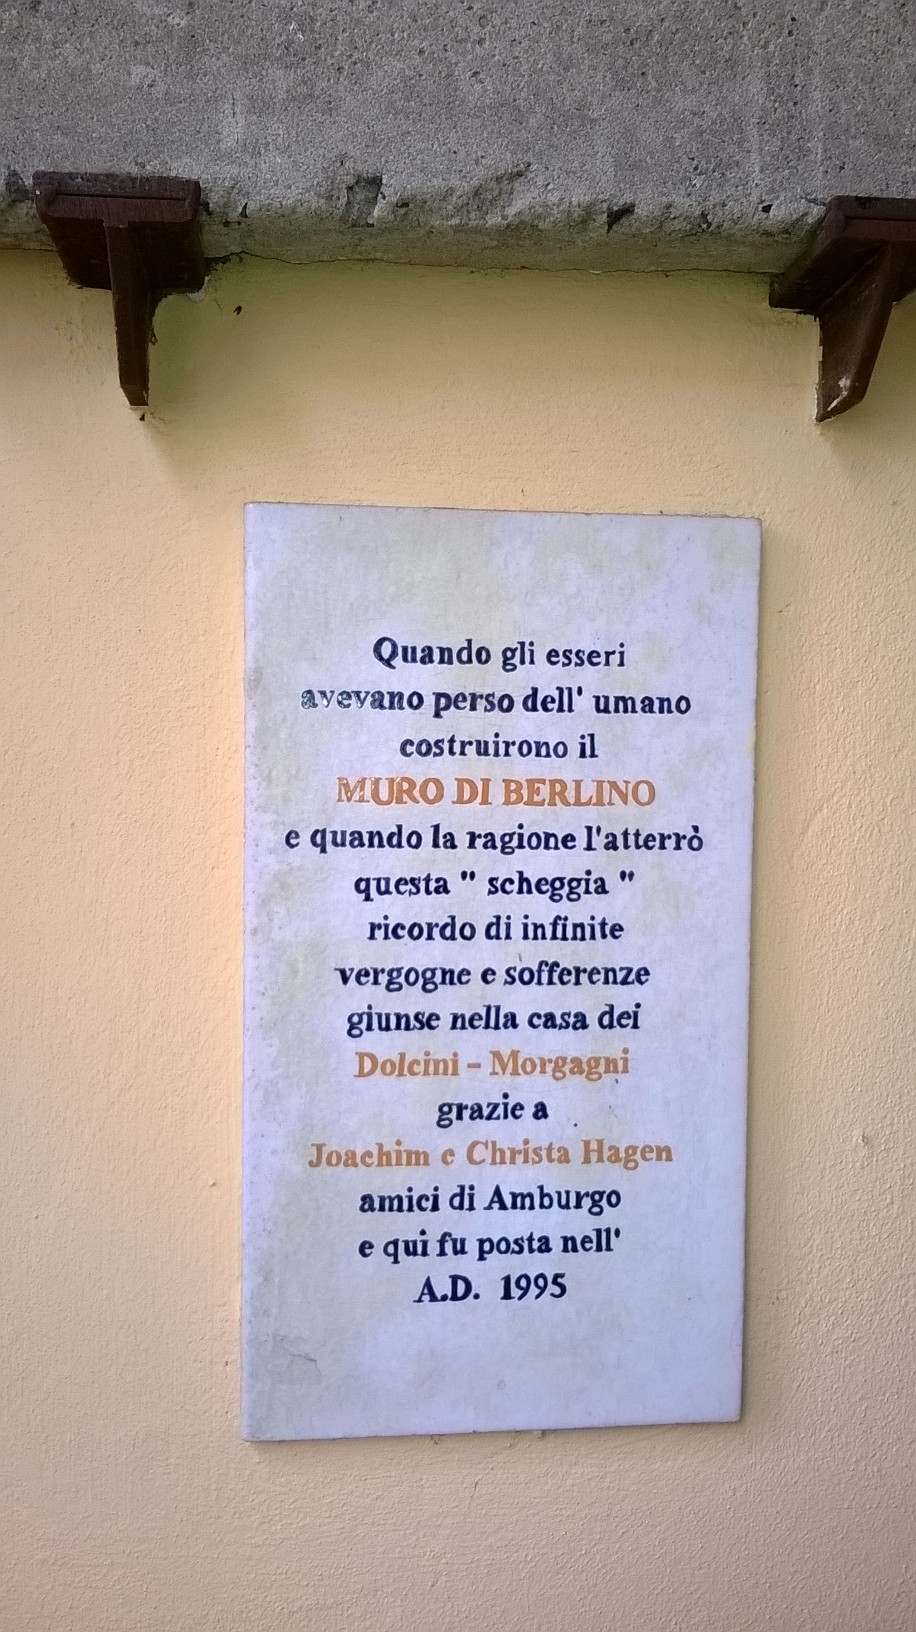 Quando gli esseri
avevano perso dell' umano
costruirono il
MURO DI BERLINO
e quando la ragione l'atterrò
questa " scheggia "
ricordo di infinite
vergogne e sofferenze
giunse nella casa dei
Dolcini - Morgagni
grazie a
Joachim e Christa Hagen
amici di Amburgo
e qui fu posta nell'
A.D. 1995